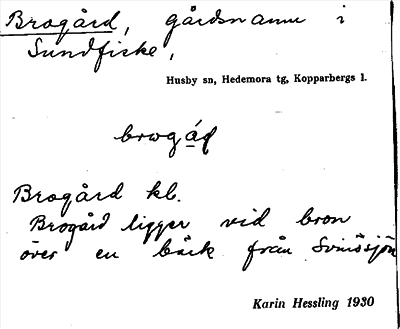 Brogård, gårdsnamn i
Sundfiske,
Husby sn, Hedemora tg, Kopparbergs l.
Brogård kl.
Brogård ligger vid bron
över en bäck från Svinösjön
Karin Hessling 1930